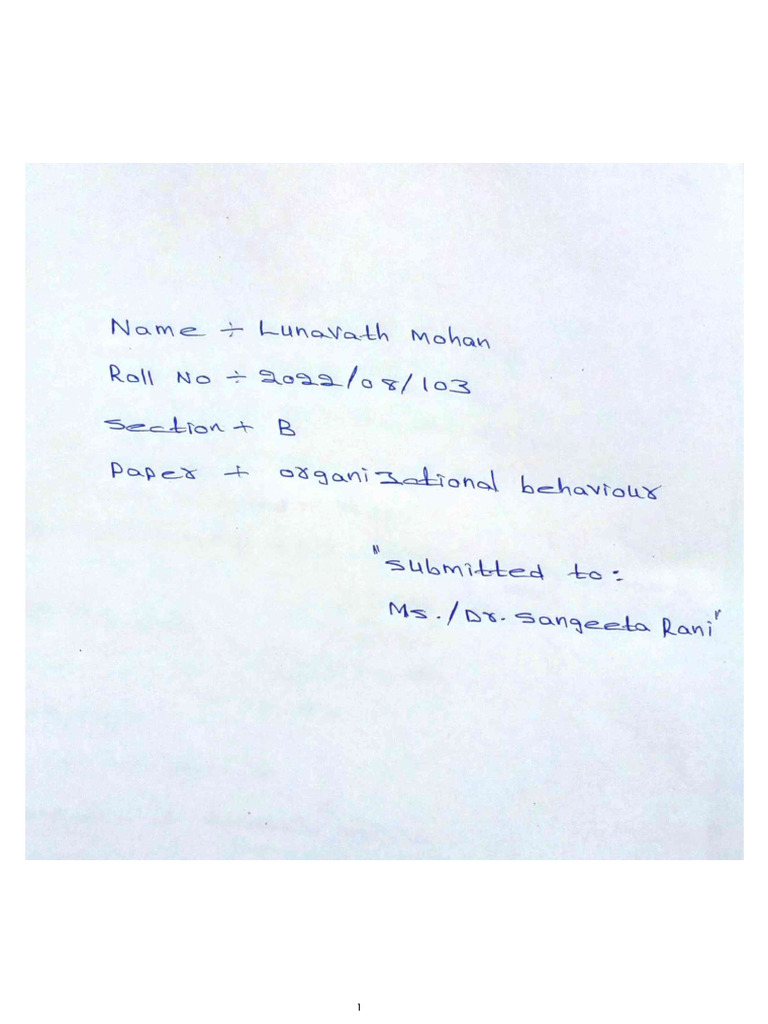 Name ÷ Lunavath Mohan
Roll No ÷ 2022/08/103
Section ÷ B
Paper ÷ organizational behaviour
"Submitted to:
Ms./Dr. Sangeeta Rani"
1